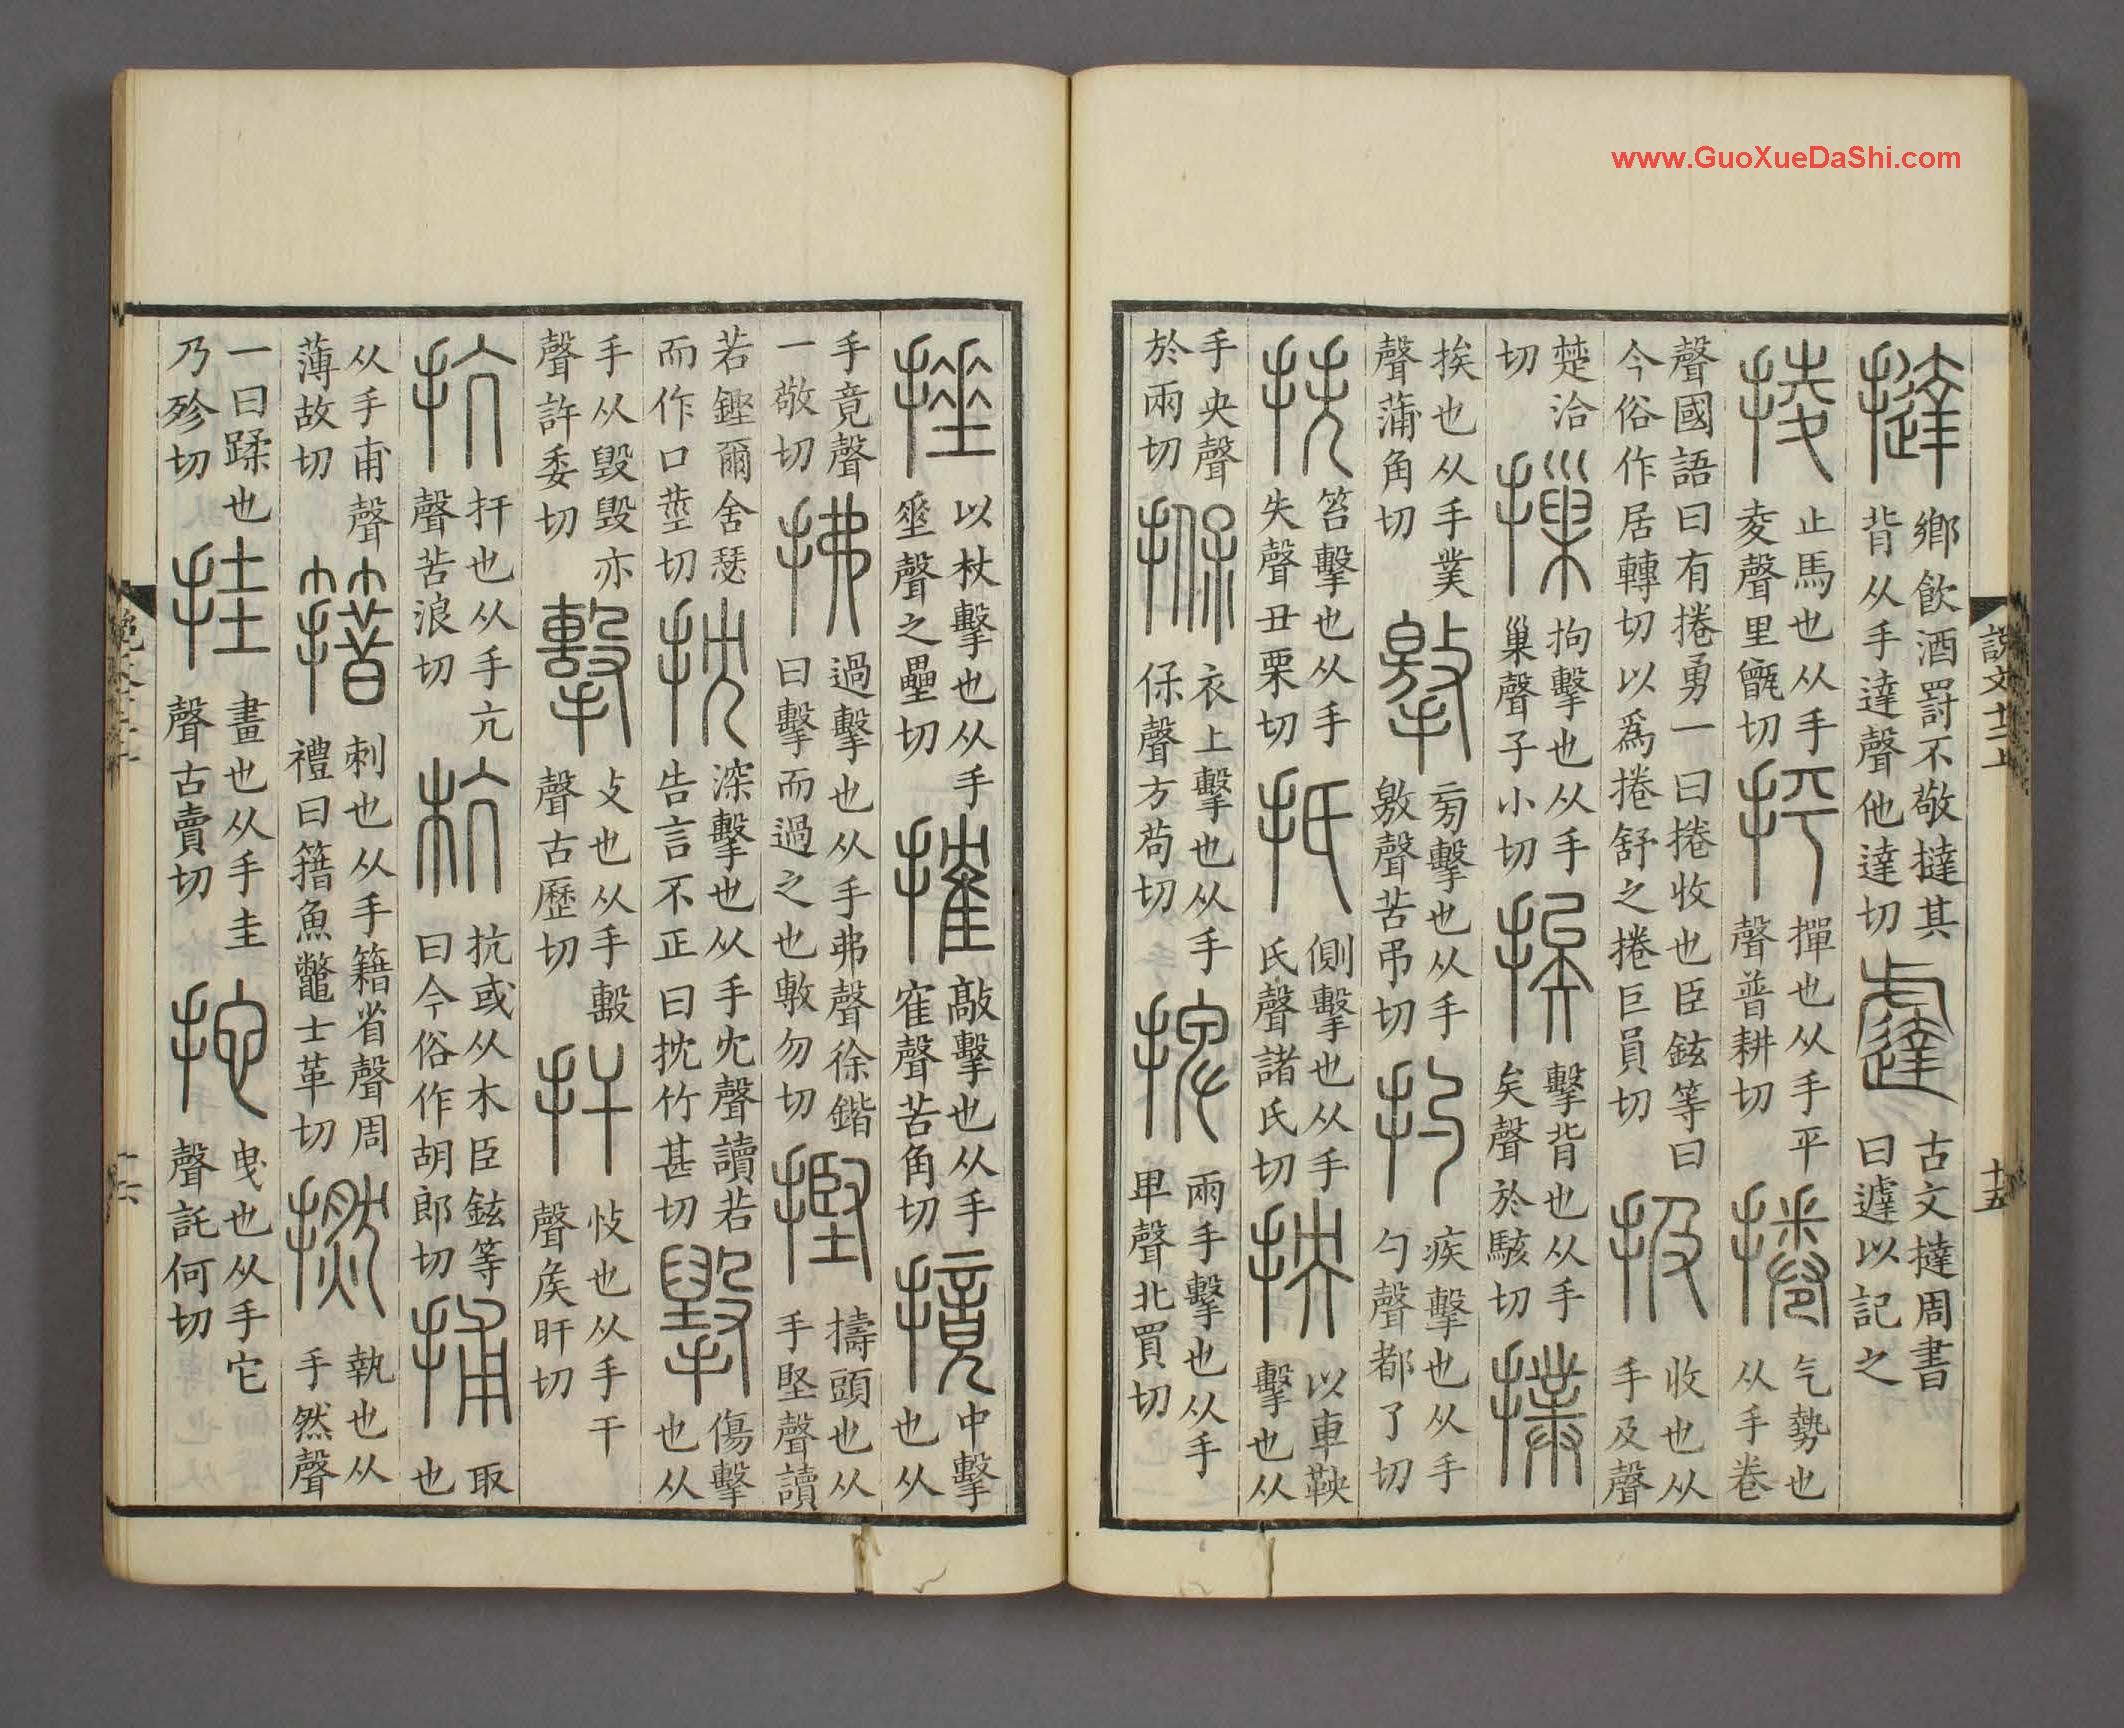 說文十二上
十五
撻鄉飲酒罰不敬撻其背从手達聲他達切𨘉古文撻周書曰遽以記之
掕止馬也从手夌聲里甑切抨撣也从手平聲普耕切捲气勢也从手卷
聲國語曰有捲勇一曰捲收也臣鉉等曰今俗作居轉切以爲捲舒之捲巨員切扱收也从手及聲
楚洽切摷拘擊也从手巢聲子小切挨擊背也从手矣聲於駭切撲
挨也从手菐聲蒲角切擎旁擊也从手敫聲苦弔切扚疾擊也从手勺聲都了切
抶笞擊也从手失聲丑栗切抵側擊也从手氏聲諸氏切抰以車鞅擊也从
手央聲於兩切㧵衣上擊也从手保聲方苟切捭兩手擊也从手卑聲北買切
捶以杖擊也从手垂聲之壘切搉敲擊也从手隺聲苦角切摬中擊也从
手竟聲一敬切拂過擊也从手弗聲徐鍇曰擊而過之也敷勿切摼擣頭也从手堅聲讀
若鏗爾舍瑟而作口莖切抌深擊也从手冘聲讀若告言不正曰抌竹甚切擊傷擊也从
手从毀毀亦聲許委切擊攴也从手毄聲古歷切扞忮也从手干聲矦旰切
抗扞也从手亢聲苦浪切杭抗或从木臣鉉等曰今俗作胡郎切捕取也
从手甫聲薄故切簎刺也从手籍省聲周禮曰籍魚鼈士革切撚執也从手然聲
一曰蹂也乃殄切挂畫也从手圭聲古賣切拕曳也从手它聲託何切
www.GuoXueDaShi.com